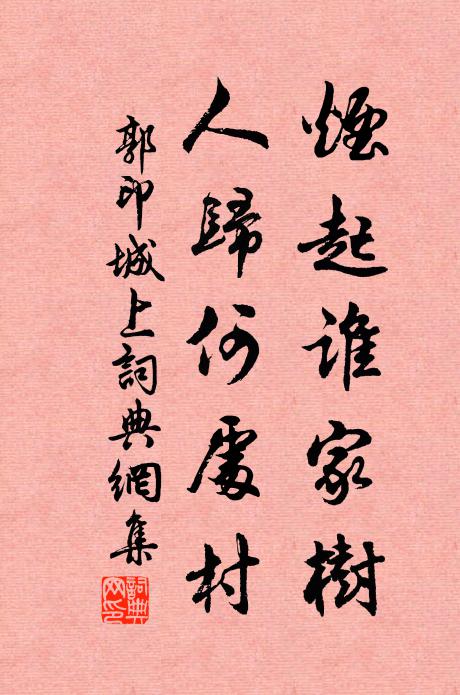 煙起誰家樹
人歸何處村
郭印城上詞典網集
詞典网印